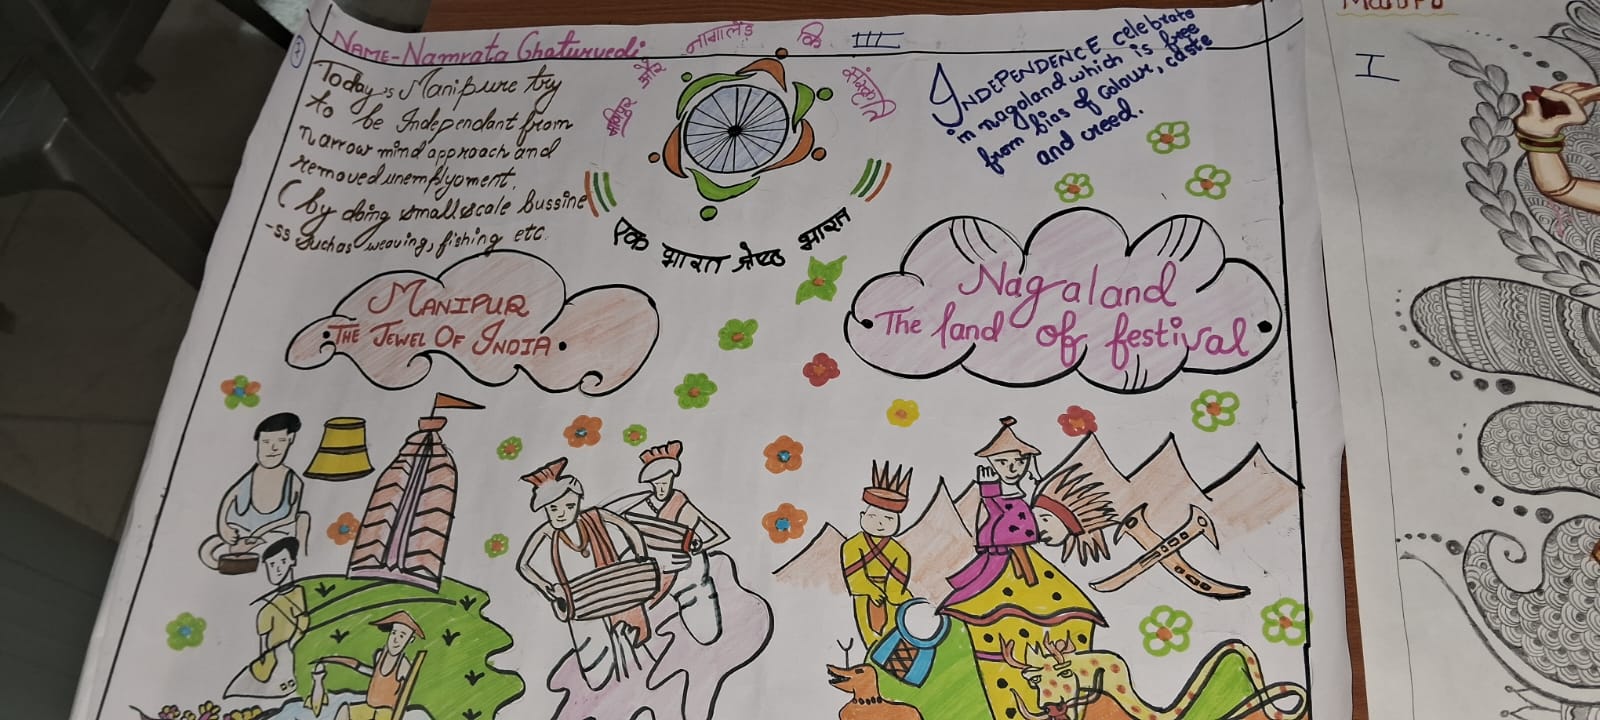 NAME-Namrata Chaturvedi
मणिपुर और नागालैंड कि संस्कृति
III
Today is Manipure try
to be Independant from
narrow mind approach and
removed unemplyoment.
( by doing smallscale bussine
-ss suchas weaving, fishing etc.
INDEPENDENCE celebrate
in nagaland which is free
from bias of colour, caste
and creed.
एक भारत श्रेष्ठ भारत
MANIPUR
THE JEWEL OF INDIA
Nagaland
The land of festival
I